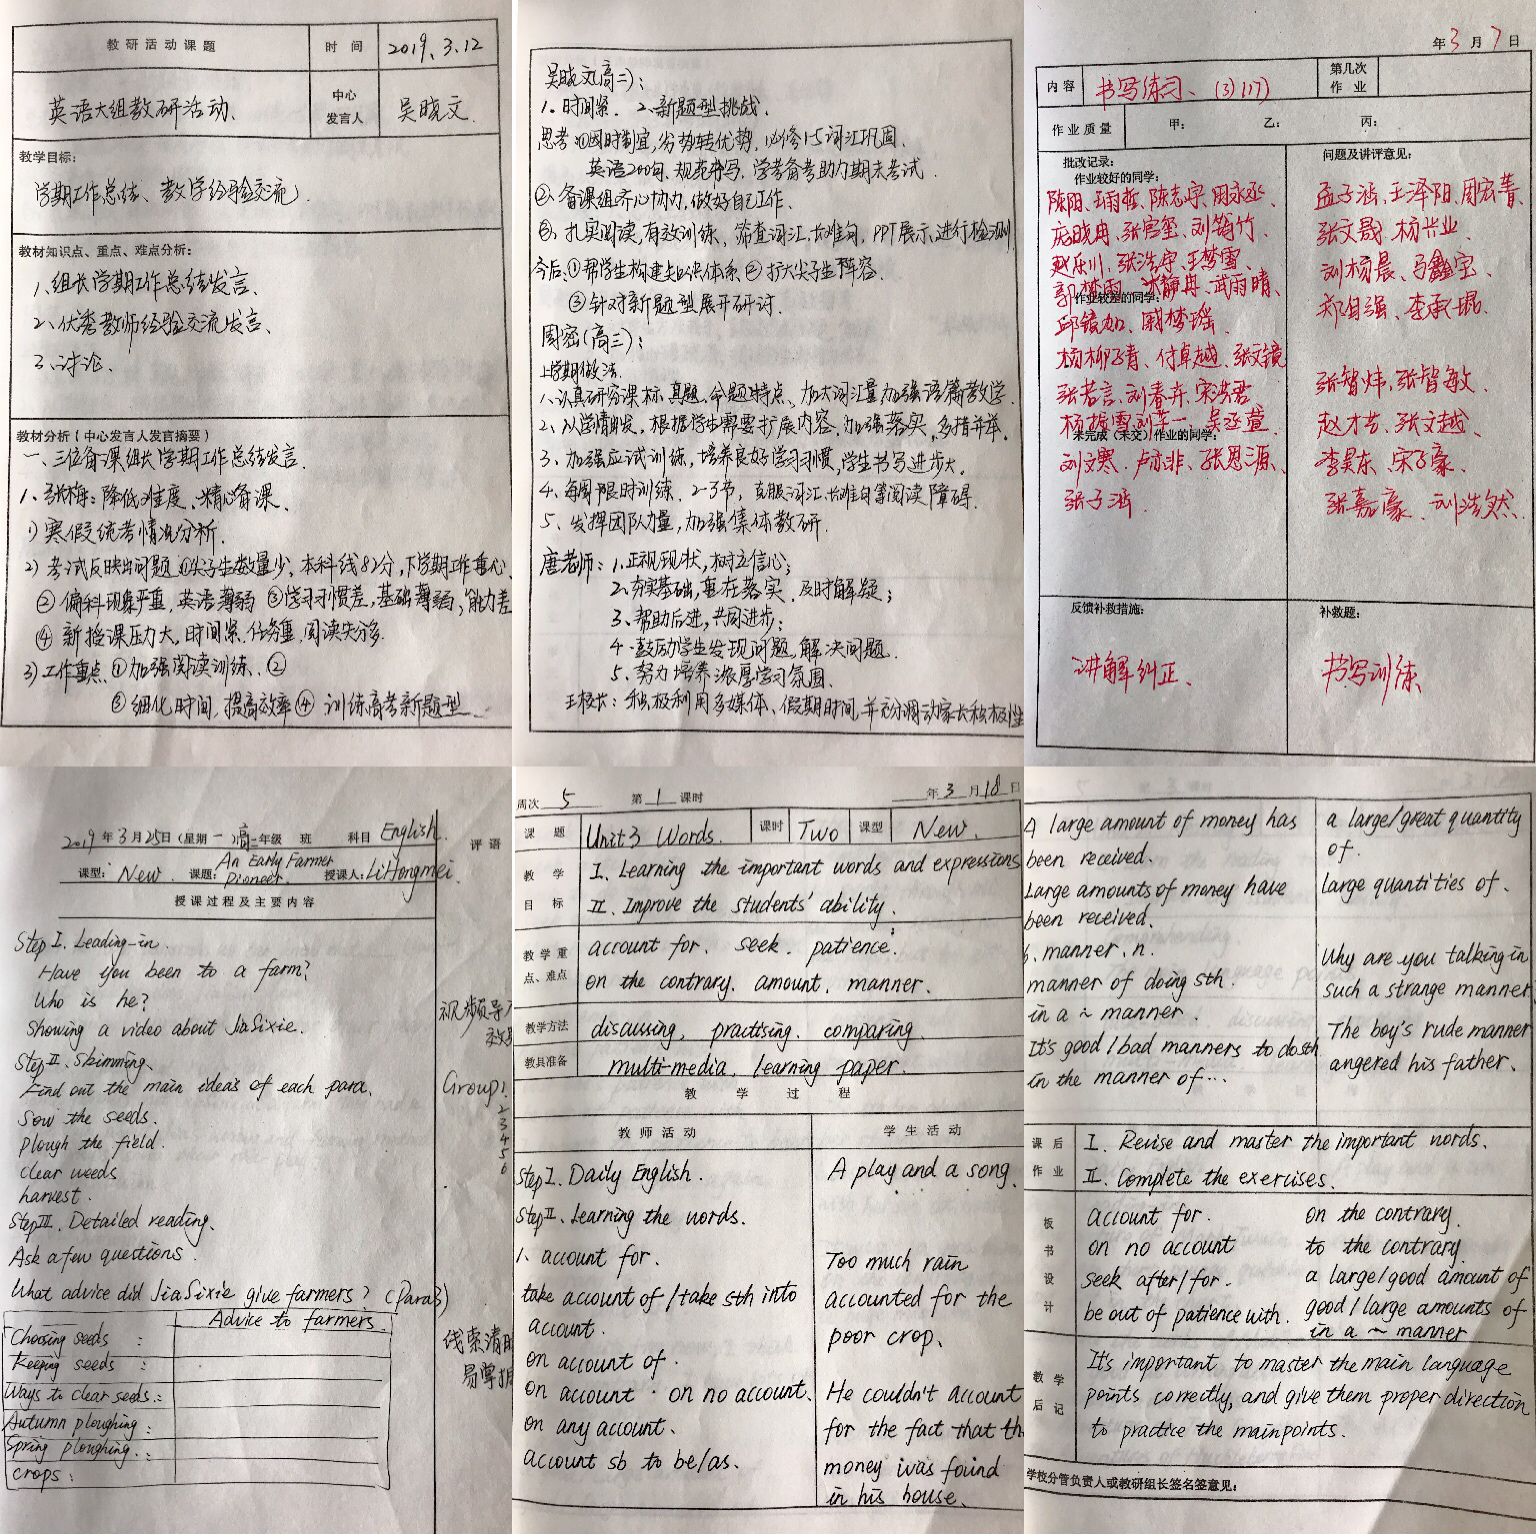 教研活动课题
时 间
2019.3.12
英语大组教研活动.
中心
发言人
吴晓文.
教学目标:
学期工作总结、教学经验交流.
教材知识点、重点、难点分析:
1、组长学期工作总结发言、
2、优秀教师经验交流发言、
3、讨论、
教材分析(中心发言人发言摘要)
一、三位备课组长学期工作总结发言.
1、张梅: 降低难度、精心备课、
1) 寒假统考情况分析.
2) 考试反映出问题 ①尖子生数量少, 本科线82分, 下学期工作重心.
② 偏科现象严重, 英语薄弱 ③学习习惯差, 基础薄弱, 能力差
④ 新授课压力大, 时间紧, 任务重, 阅读失分多.
3) 工作重点 ①加强阅读训练、②
③ 细化时间, 提高效率 ④ 训练高考新题型.
吴晓文(高二):
1. 时间紧. 2、新题型挑战.
思考 ①因时制宜, 劣势转优势, 必修1-5词汇巩固.
英语200句, 规范书写, 学考备考助力期末考试.
②、备课组齐心协力, 做好自己工作.
③、扎实阅读, 有效训练, 筛查词汇, 长难句, PPT展示, 进行检测
今后: ①帮学生构建知识体系 ② 扩大尖子生阵容.
③ 针对新题型展开研讨.
周密(高三):
上学期做法.
1、认真研究课标, 真题, 命题特点、加大词汇量加强语篇教学.
2、以学情出发, 根据学生需要扩展内容, 加强落实, 多措并举.
3、加强应试训练, 培养良好学习习惯, 学生书写进步大.
4、每周限时训练, 2-3节, 克服词汇, 长难句等阅读障碍.
5、发挥团队力量, 加强集体教研.
唐老师: 1.正视现状, 树立信心;
2、夯实基础, 重在落实, 及时解疑;
3、帮助后进, 共同进步;
4. 鼓励学生发现问题, 解决问题.
5. 努力培养浓厚学习氛围.
王校长: 积极利用多媒体、假期时间, 并充分调动家长积极性
年 3 月 7 日
内容
书写练习、(3)(17)
第几次
作 业
作业质量
甲:
乙:
丙:
批改记录:
作业较好的同学:
陈阳、王雨哲、陈志宇、周永丞、
庞晓冉、张宫玺、刘筠竹、
赵乐川、张浩宇、王梦雪、
郭梦雨、冰静冉、武雨晴、
作业较差的同学:
邱镜如、戚梦瑶.
杨柳青、付卓越、张文镜
张若言、刘春卉、宋洪君
杨振雪、刘芊一、吴丞萱
未完成(未交)作业的同学:
刘文寒. 卢亦非、张恩源、
张子涵
问题及讲评意见:
孟子涵、王泽阳、周宏菁、
张文晟、杨兴业、
刘杨晨、马鑫宝、
郑自强、李承琨.
张智炜、张智敏.
赵才艺、张文越、
李昊东、宋子豪、
张嘉豪、刘浩然.
反馈补救措施:
讲解纠正、
补救题:
书写训练
2019 年 3 月 25 日 (星期 一) 高一 年级 班 科目 English.
评 语
课型: New. 课题: An Early Farmer Pioneer. 授课人: Li Hongmei.
授课过程及主要内容
Step I. Leading-in.
Have you been to a farm?
Who is he?
Showing a video about JiaSixie.
Step II. Skimming.
Find out the main ideas of each para.
Sow the seeds.
Plough the field.
clear weeds
harvest.
Step III. Detailed reading.
Ask a few questions.
What advice did JiaSixie give farmers? (Para3)
Advice to farmers
Choosing seeds :
Keeping seeds :
Ways to clear seeds.:
Autumn ploughing :
Spring ploughing. :
crops :
视频导入
Group1.
2
3
4
5
6
线索清晰
易掌握
周次 5 第 1 课时 年 3 月 18 日
课 题
Unit 3 Words.
课时
Two
课型
New.
教 学
目 标
I. Learning the important words and expressions
II. Improve the students' ability.
教学重
点、难点
account for. seek. patience;
on the contrary. amount. manner.
教学方法
discussing, practising. comparing.
教具准备
multi-media. learning paper.
教 学 过 程
教师活动
学生活动
Step I. Daily English.
Step II. Learning the words.
1. account for.
take account of / take sth into
account.
on account of.
on account . on no account.
on any account.
account sb to be/as.
A play and a song.
Too much rain
accounted for the
poor crop.
He couldn't account
for the fact that th
money was found
in his house.
A large amount of money has
been received.
Large amounts of money have
been received.
6. manner. n.
manner of doing sth.
in a ~ manner.
It's good / bad manners to do sth
in the manner of...
a large/great quantity
of.
large quantities of.
Why are you talking in
such a strange manner
The boy's rude manner
angered his father.
课 后
作 业
I. Revise and master the important words.
II. Complete the exercises.
板
书
设
计
account for.
on no account
seek after/for.
be out of patience with.
on the contrary.
to the contrary
a large/good amount of
good / large amounts of
in a ~ manner
教 学
后 记
It's important to master the main language
points correctly, and give them proper direction
to practice the main points.
学校分管负责人或教研组长签名签意见: